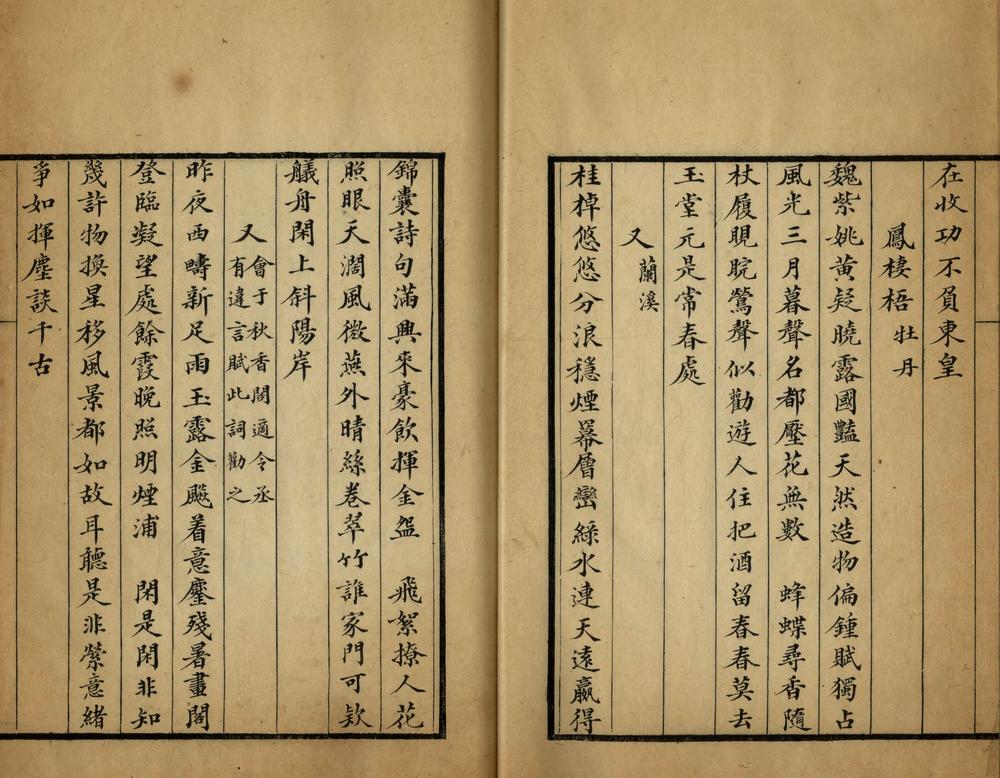 在收功不負東皇
鳳棲梧 牡丹
魏紫姚黃疑曉露國豔天然造物偏鍾賦獨占
風光三月暮聲名都壓花無數 蜂蝶尋香隨
杖履睍睆鶯聲似勸遊人住把酒留春春莫去
玉堂元是常春處
又 蘭溪
桂棹悠悠分浪穩煙幕層巒綠水連天遠贏得
錦囊詩句滿興來豪飲揮金盌 飛絮撩人花
照眼天濶風微燕外晴絲卷翠竹誰家門可欵
艤舟閑上斜陽岸
又 會于秋香閣適令丞
有違言賦此詞勸之
昨夜西疇新足雨玉露金飈着意塵殘暑畫閣
登臨凝望處餘霞晚照明煙浦 閑是閑非知
幾許物換星移風景都如故耳聽是非縈意緒
爭如揮麈談千古